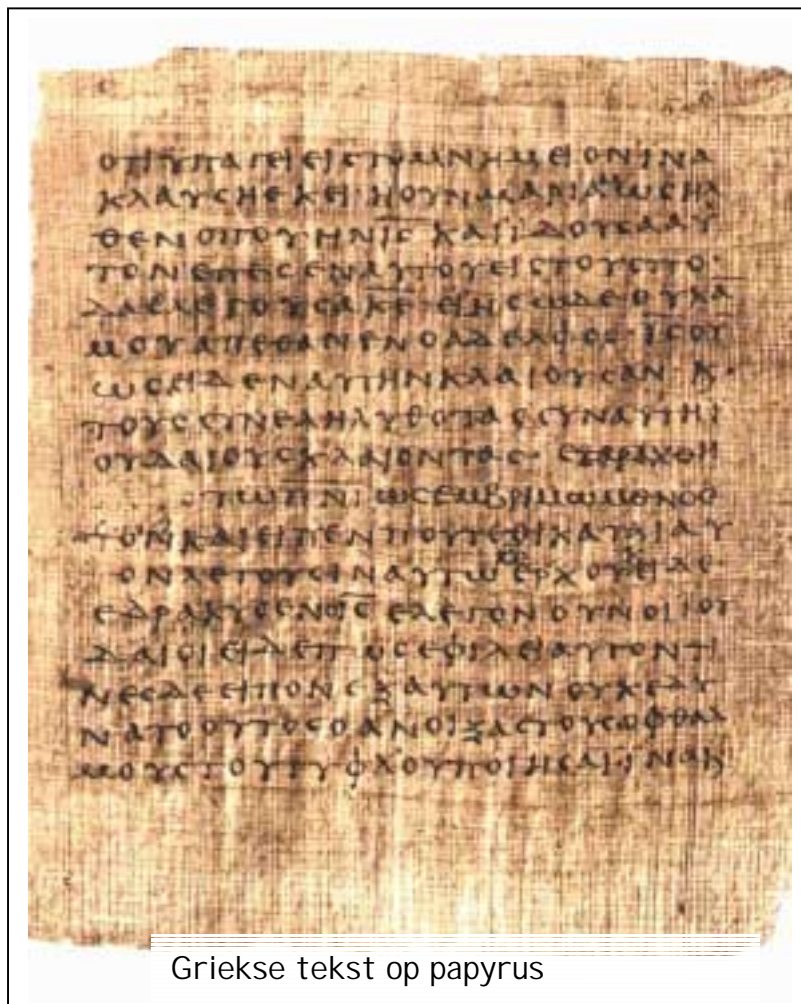 ΟΤΙΥΠΑΓΕΙΕΙϹΤΟΜΝΗΜΕΙΟΝΙΝΑ
ΚΛΑΥϹΗΕΚΕΙ·ΗΟΥΝΜΑΡΙΑΩϹΗΛ
ΘΕΝΟΠΟΥΗΝΙϹΚΑΙΙΔΟΥϹΑΑΥ
ΤΟΝΕΠΕϹΕΝΑΥΤΟΥΕΙϹΤΟΥϹΠΟ
ΔΑϹΛΕΓΟΥϹΑΚΕ·ΕΙΗϹΩΔΕΟΥΚΑ
ΜΟΥΑΠΕΘΑΝΕΝΟΑΔΕΛΦΟϹ·ΙϹΟΥ
ΩϹΕΙΔΕΝΑΥΤΗΝΚΛΑΙΟΥϹΑΝΚ
ΤΟΥϹϹΥΝΕΛΗΛΥΘΟΤΑϹϹΥΝΑΥΤΗΙ
ΟΥΔΑΙΟΥϹΚΛΑΙΟΝΤΑϹ·ΕΤΑΡΑΧΘΗ
ΤΩΠΝΙΩϹΕΜΒΡΙΜΩΜΕΝΟ
ΤΟΝΚΑΙΕΙΠΕΝΠΟΥΤΕΘΙΚΑΤΑΙΑΥ
ΤΟΝΛΕΓΟΥϹΙΝΑΥΤΩΚΕΕΡΧΟΥΚΙΔΕ
ΕΔΑΚΡΥϹΕΝΟΙϹΕΛΕΓΟΝΟΥΝΟΙΙΟΥ
ΔΑΙΟΙΕΙΔΕΠΩϹΕΦΙΛΕΙΑΥΤΟΝΤΙ
ΝΕϹΔΕΕΙΠΟΝΕΞΑΥΤΩΝΟΥΚΕΔΥ
ΝΑΤΟΟΥΤΟϹΟΑΝΟΙΞΑϹΤΟΥϹΟΦΘΑΛ
ΜΟΥϹΤΟΥΤΥΦΛΟΥΠΟΙΗϹΑΙΙΝΑΚ
Griekse tekst op papyrus